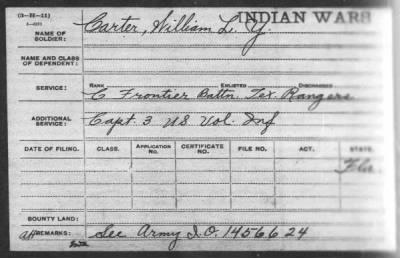 (3-H-11)
INDIAN WARS
NAME OF SOLDIER: Carter, William L. Y.
NAME AND CLASS OF DEPENDENT:
RANK ENLISTED DISCHARGED
SERVICE: C Frontier Battn. Tex. Rangers
ADDITIONAL SERVICE: Capt. 3 US Vol. Inf
DATE OF FILING. CLASS. APPLICATION No. CERTIFICATE No. FILE No. ACT. STATE
Fla
BOUNTY LAND:
REMARKS: See Army I.O. 1456624